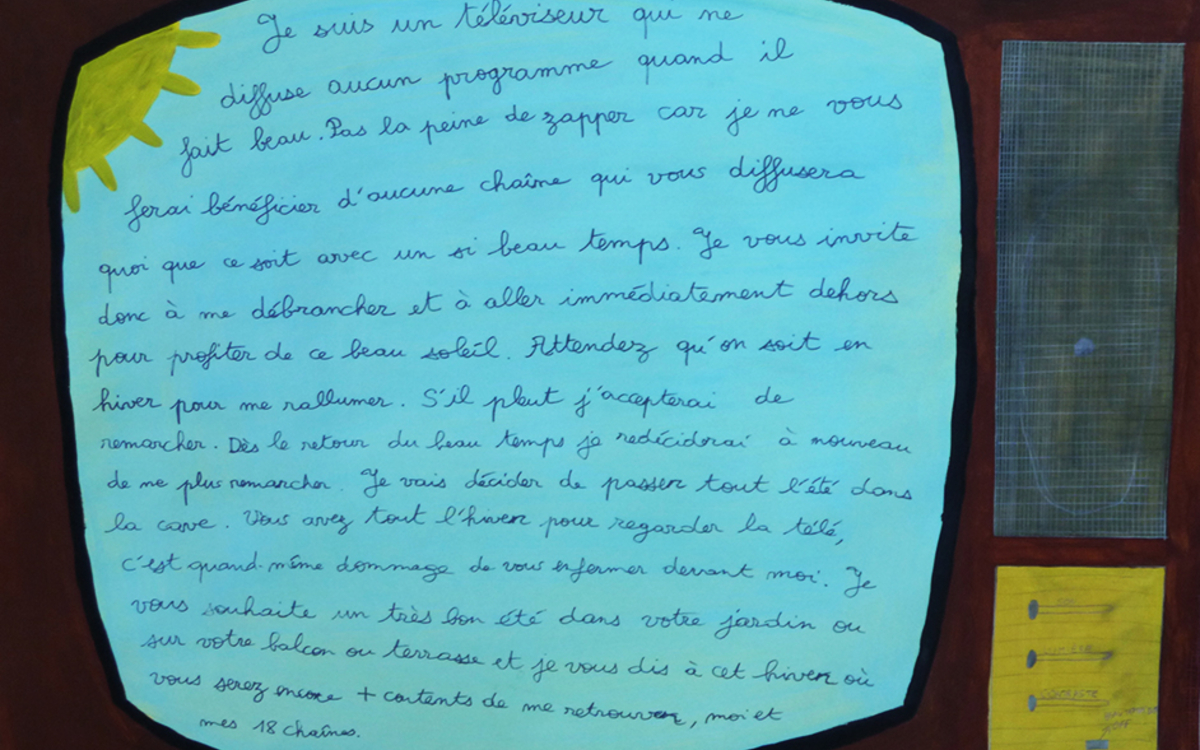 Je suis un téléviseur qui ne
diffuse aucun programme quand il
fait beau. Pas la peine de zapper car je ne vous
ferai bénéficier d'aucune chaîne qui vous diffusera
quoi que ce soit avec un si beau temps. Je vous invite
donc à me débrancher et à aller immédiatement dehors
pour profiter de ce beau soleil. Attendez qu'on soit en
hiver pour me rallumer. S'il pleut j'accepterai de
remarcher. Dès le retour du beau temps je redéciderai à nouveau
de ne plus remarcher. Je vais décider de passer tout l'été dans
la cave. Vous avez tout l'hiver pour regarder la télé,
c'est quand-même dommage de vous enfermer devant moi. Je
vous souhaite un très bon été dans votre jardin ou
sur votre balcon ou terrasse et je vous dis à cet hiver où
vous serez encore + contents de me retrouver, moi et
mes 18 chaînes.
SON
LUMIÈRE
CONTRASTE